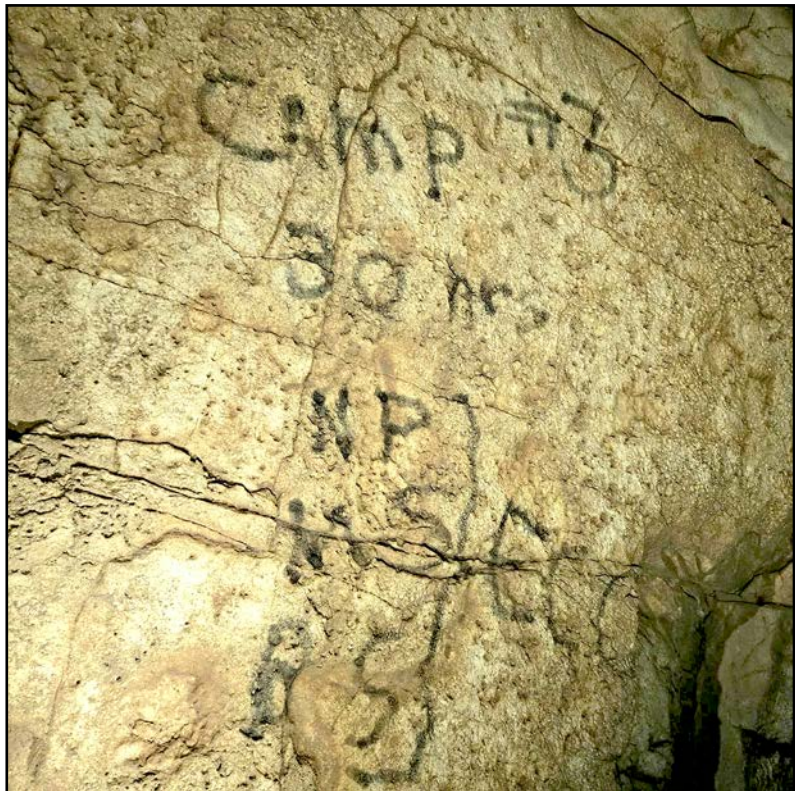 Camp #3
30 hrs
NP
NS
RS